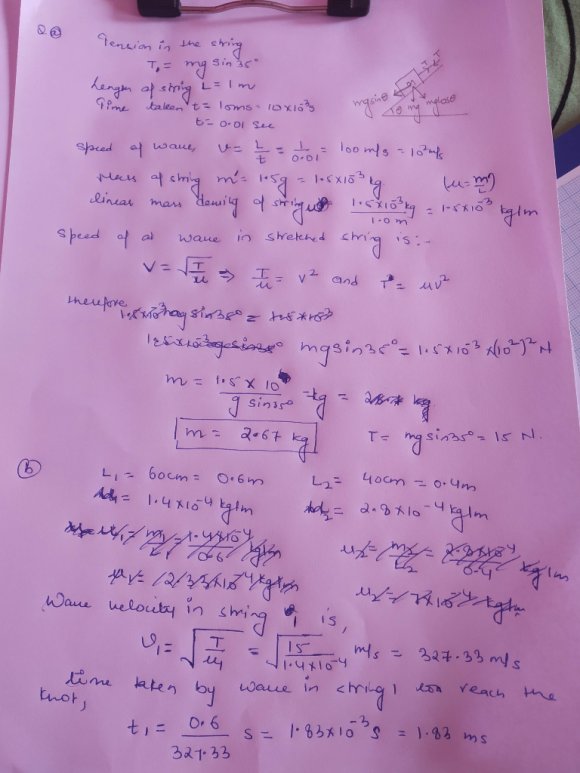 Q ②
Tension in the string
T, = mg sin 35°
Length of string L = 1 m
Time taken t = 10ms = 10×10⁻³s
t = 0.01 sec
T
T
m
mgsinθ
θ mg mgcosθ
Speed of wave, v = L/t = 1/0.01 = 100 m/s = 10² m/s
Mass of string m' = 1.5g = 1.5×10⁻³ kg (μ = m/L)
linear mass density of string = 1.5×10⁻³kg/1.0 m = 1.5×10⁻³ kg/m
Speed of a wave in stretched string is:-
V = √(T/μ) ⇒ T/μ = v² and T = μv²
therefore
mg sin 35° = 1.5×10⁻³ × (10²)² N
m = 1.5 × 10/g sin 35° kg =
m = 2.67 kg T = mg sin 35° = 15 N.
ⓑ
L₁ = 60cm = 0.6m L₂ = 40cm = 0.4m
= 1.4×10⁻⁴ kg/m = 2.8×10⁻⁴ kg/m
Wave velocity in string 1 is,
v₁ = √(T/μ₁) = √(15/1.4×10⁻⁴) m/s = 327.33 m/s
time taken by wave in string 1 to reach the
knot,
t₁ = 0.6/327.33 s = 1.83×10⁻³ s = 1.83 ms